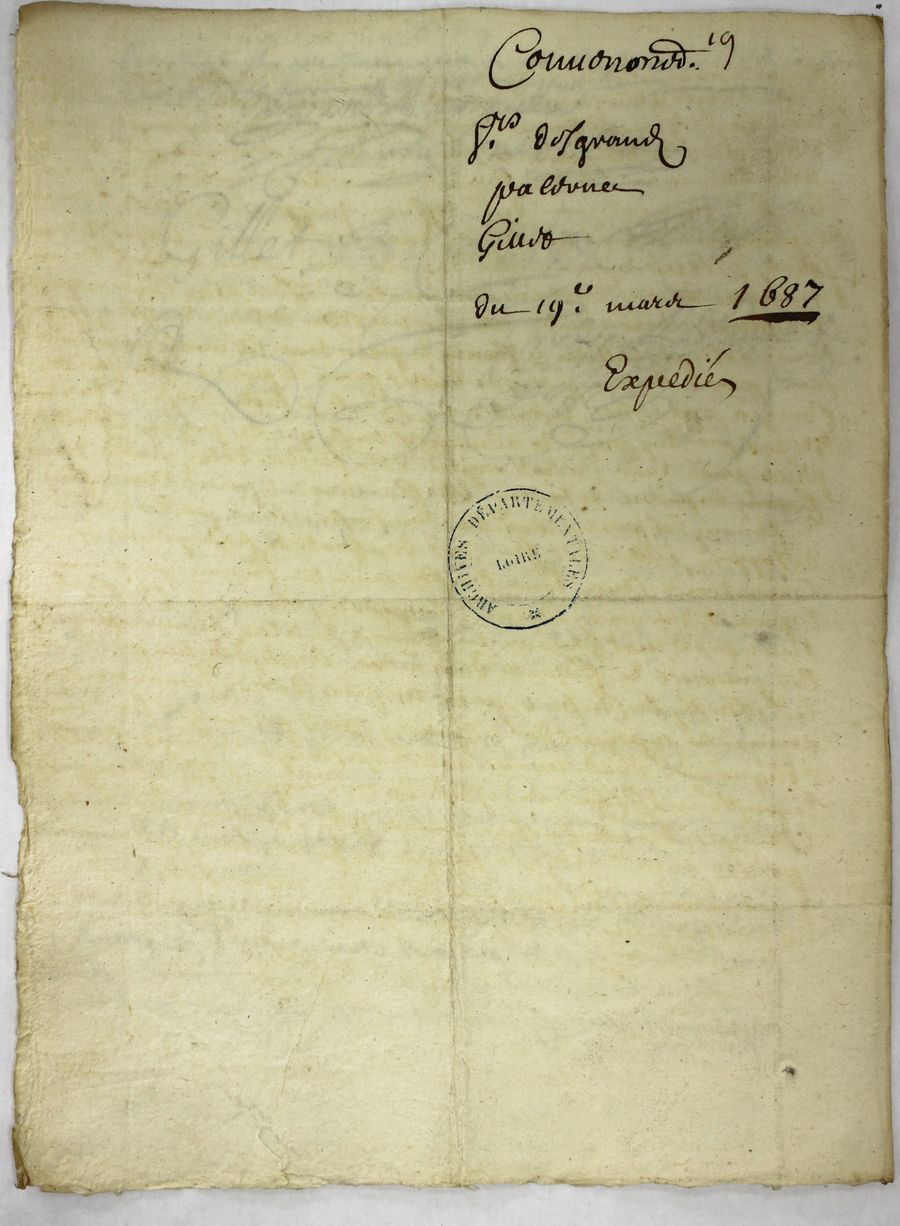 Conuenand. 19
Srs desgrand
palerne
Gillet
du 19e. mars 1687
Expedié
ARCHIVES DÉPARTEMENTALES
LOIRE